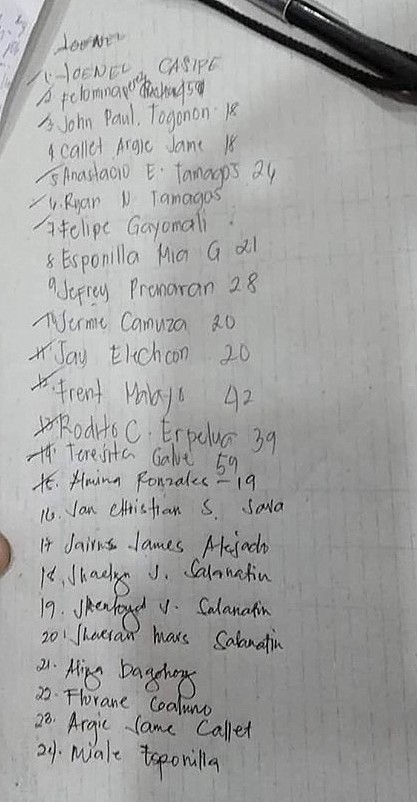 JOENEL
1. JOENEL CASIPE
2 Felomina
3 John Paul. Togonon 18
4 Callet Argie Jame 18
5 Anastacio E. Tamagos 24
6. Ryan N Tamagos
7 Felipe Gayomali
8 Esponilla Mia G 21
9 Jefrey Premaran 28
Jerme Camuza 20
11 Jay Elechcon 20
12. Frent Malayo 42
13 Rodito C. Erpelua 39
14. Teresita Galve 59
15. Almina Ronzales - 19
16. Jan Christian S. Sava
17 Jairus James Alejado
18. Shaelyn J. Salanatin
19. J. Salanatin
20. Mars Salanatin
21.
22. Florane
23. Argie Jame Callet
24. Miale Esponilla